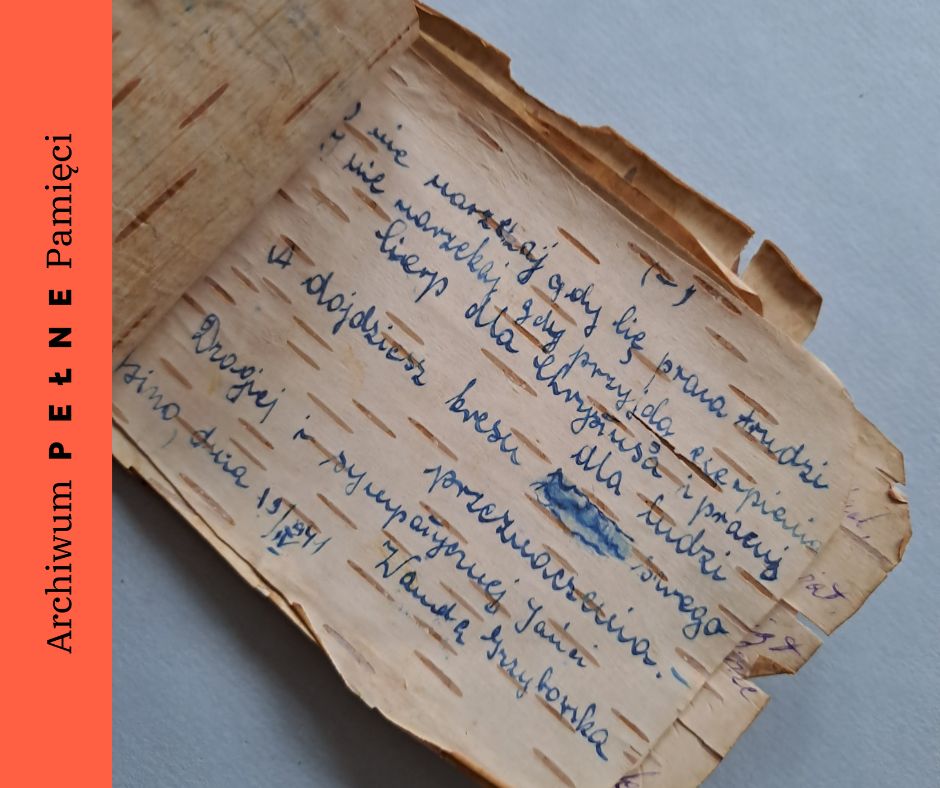 Archiwum PEŁNE Pamięci
(-)
nie narzekaj gdy się praca trudzi
nie narzekaj, gdy przyjdą cierpienia
Cierp dla Chrystusa i pracuj
dla ludzi
A dojdziesz kresu swego
przeznaczenia.-
Drogiej i sympatycznej Jańci
Wanda Grzybowska
dnia 19/IV 941